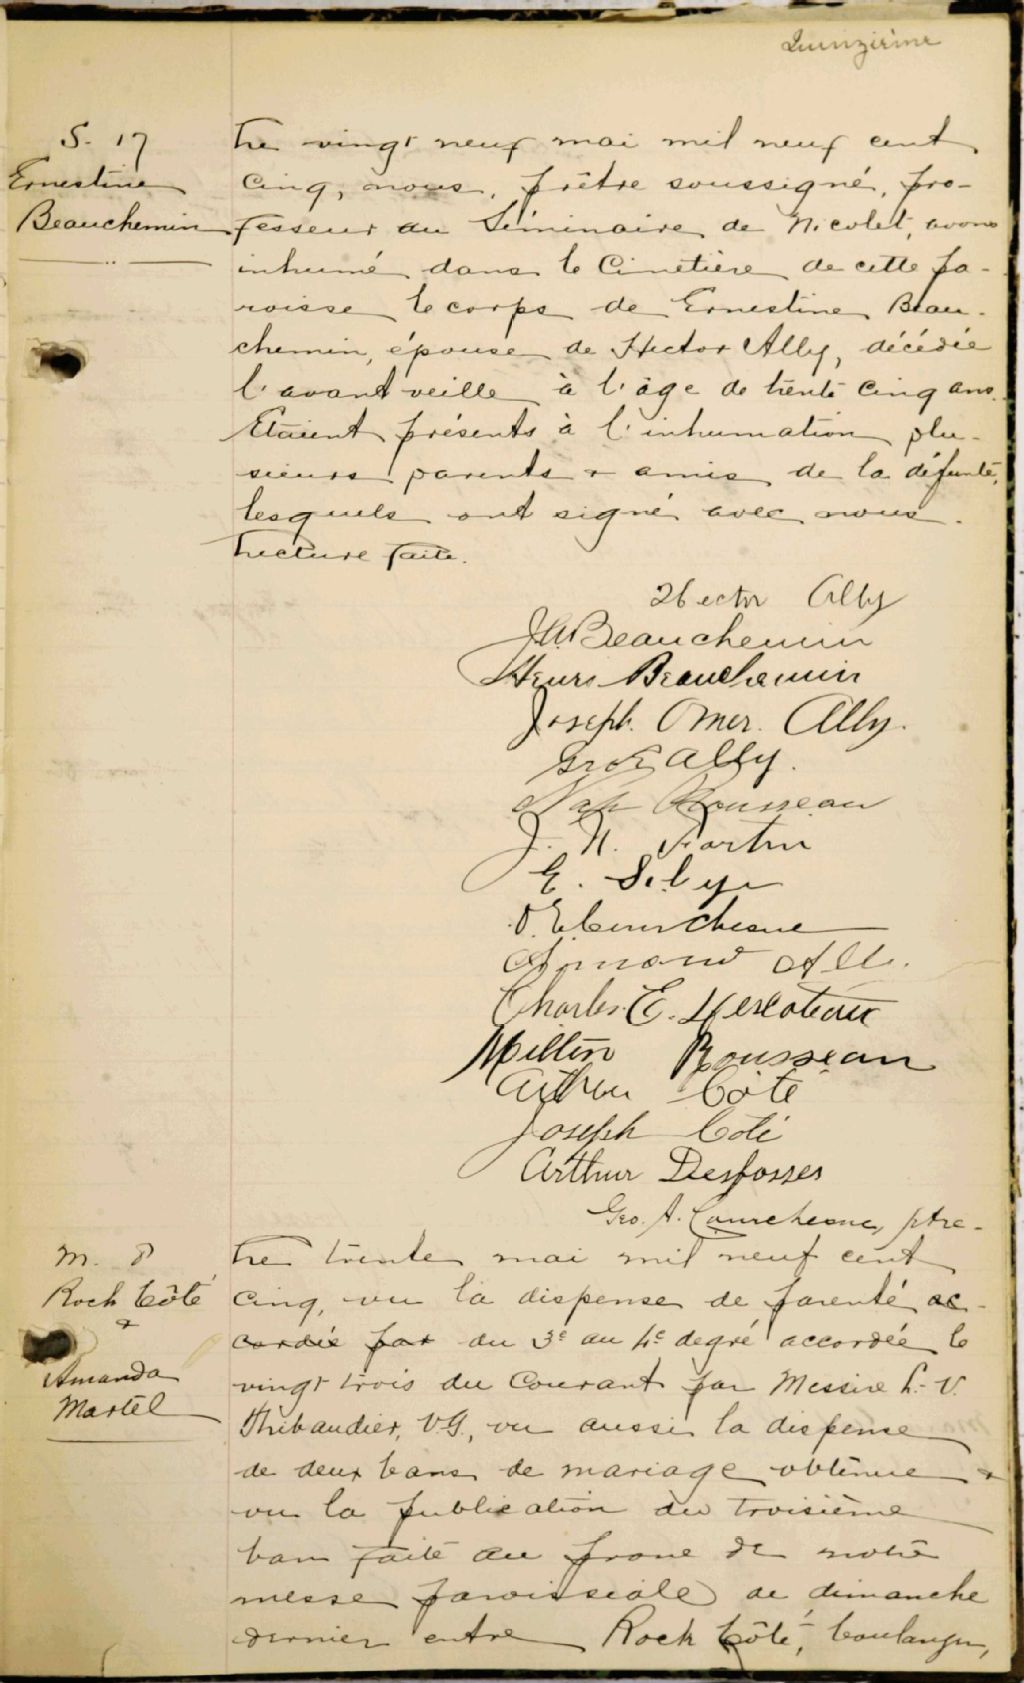 Quinzième
S. 17
Ernestine
Beauchemin
Le vingt neuf mai mil neuf cent
cinq, nous, prêtre soussigné, pro-
fesseur au Séminaire de Nicolet, avons
inhumé dans le Cimetière de cette pa-
roisse le corps de Ernestine Beau-
chemin, épouse de Hector Ally, décédée
l'avant veille à l'âge de trente cinq ans.
Etaient présents à l'inhumation plu-
sieurs parents & amis de la défunte,
lesquels ont signé avec nous.
Lecture faite.
Hector Ally
J.A. Beauchemin
Henri Beauchemin
Joseph Omer Ally.
Ally.
Nap Rousseau
J. N. Fortin
E.
Courchesne
Armand
Charles E. Descoteaux
Milton Rousseau
Arthur Coté
Joseph Coté
Arthur Desfosses
Geo. A. Courchesne, ptre-
M. 8
Rock Côté
&
Amanda
Martel
Le trente mai mil neuf cent
cinq, vu la dispense de parenté ac-
cordée par du 3e au 4e degré accordée le
vingt trois du courant par Messire L. V.
Thibaudier, V.G., vu aussi la dispense
de deux bans de mariage obtenue &
vu la publication du troisième
ban faite au prone de notre
messe paroissiale de dimanche
dernier entre Rock Côté, boulanger,